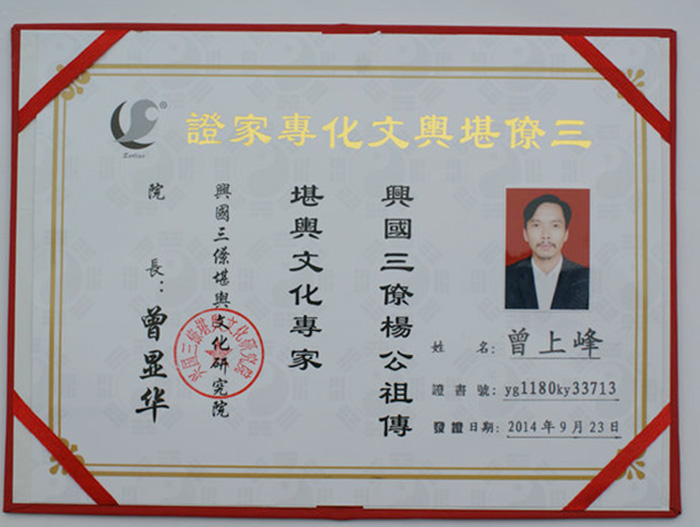 三僚堪輿文化專家證
興國三僚楊公祖傳
堪輿文化專家
興國三僚堪輿文化研究院
院長：曾显华
姓名：曾上峰
證書號：yg1180ky33713
發證日期：2014年9月23日
兴国三僚堪舆文化研究院
®